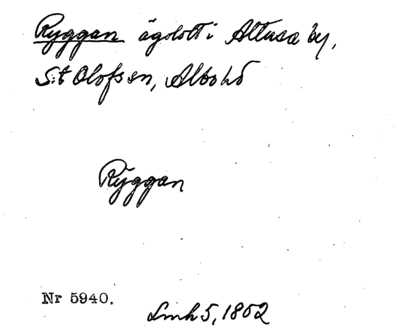 Ryggan ägolott i Altusa by,
S:t Olofs sn, Albo hd
Ryggan
Nr 5940.
Lmh 5, 1802